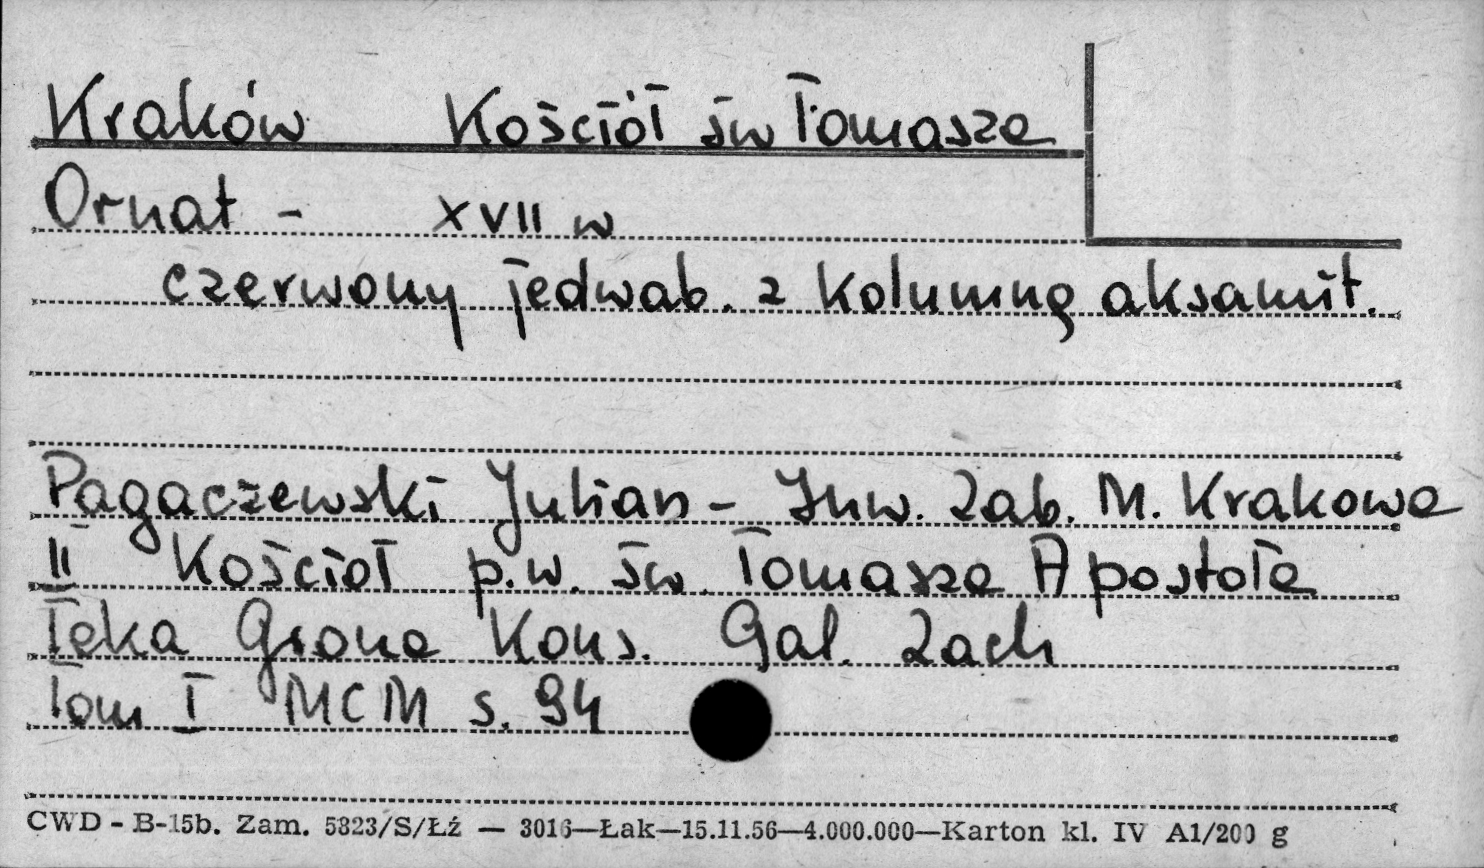 Kraków Kościół św Tomasza
Ornat - XVII w
czerwony jedwab. z kolumną aksamit.
Pagaczewski Julian - Inw. Zab. M. Krakowa
II Kościoł p.w. św. Tomasza Apostoła
Teka Grona Kons. Gal. Zach
Tom I MCM s. 94
CWD - B-15b. Zam. 5323/S/Łź — 3016—Łak—15.11.56—4.000.000—Karton kl. IV A1/200 g